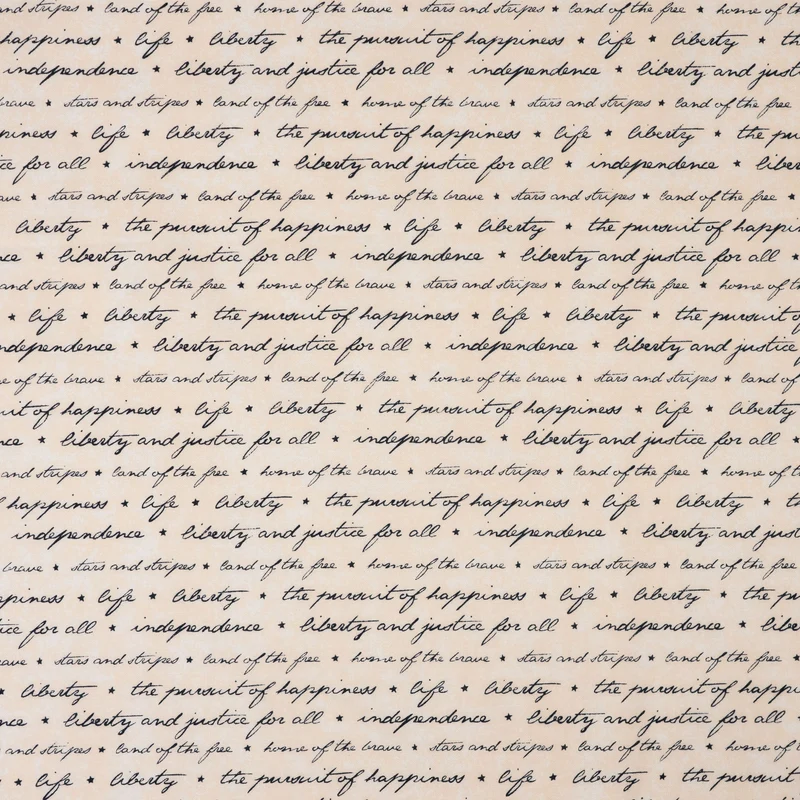 and stripes ★ land of the free ★ home of the brave ★ stars and stripes ★ land of the free ★ home of th
happiness ★ life ★ liberty ★ the pursuit of happiness ★ life ★ liberty ★ th
independence ★ liberty and justice for all ★ independence ★ liberty and just
brave ★ stars and stripes ★ land of the free ★ home of the brave ★ stars and stripes ★ land of the free
piness ★ life ★ liberty ★ the pursuit of happiness ★ life ★ liberty ★ the pu
ce for all ★ independence ★ liberty and justice for all ★ independence ★ liber
ave ★ stars and stripes ★ land of the free ★ home of the brave ★ stars and stripes ★ land of the free ★
liberty ★ the pursuit of happiness ★ life ★ liberty ★ the pursuit of happin
ce ★ liberty and justice for all ★ independence ★ liberty and justice for all ★
and stripes ★ land of the free ★ home of the brave ★ stars and stripes ★ land of the free ★ home of th
★ life ★ liberty ★ the pursuit of happiness ★ life ★ liberty ★ the pursuit of
ndependence ★ liberty and justice for all ★ independence ★ liberty and justice
e of the brave ★ stars and stripes ★ land of the free ★ home of the brave ★ stars and stripes ★ land of
uit of happiness ★ life ★ liberty ★ the pursuit of happiness ★ life ★ liberty
ce ★ liberty and justice for all ★ independence ★ liberty and justice for all ★
and stripes ★ land of the free ★ home of the brave ★ stars and stripes ★ land of the free ★ home of th
f happiness ★ life ★ liberty ★ the pursuit of happiness ★ life ★ liberty ★ th
independence ★ liberty and justice for all ★ independence ★ liberty and just
brave ★ stars and stripes ★ land of the free ★ home of the brave ★ stars and stripes ★ land of the free
ppiness ★ life ★ liberty ★ the pursuit of happiness ★ life ★ liberty ★ the pu
ice for all ★ independence ★ liberty and justice for all ★ independence ★ libe
ave ★ stars and stripes ★ land of the free ★ home of the brave ★ stars and stripes ★ land of the free ★
★ liberty ★ the pursuit of happiness ★ life ★ liberty ★ the pursuit of happi
nce ★ liberty and justice for all ★ independence ★ liberty and justice for all ★
and stripes ★ land of the free ★ home of the brave ★ stars and stripes ★ land of the free ★ home of th
★ life ★ liberty ★ the pursuit of happiness ★ life ★ liberty ★ the pursuit